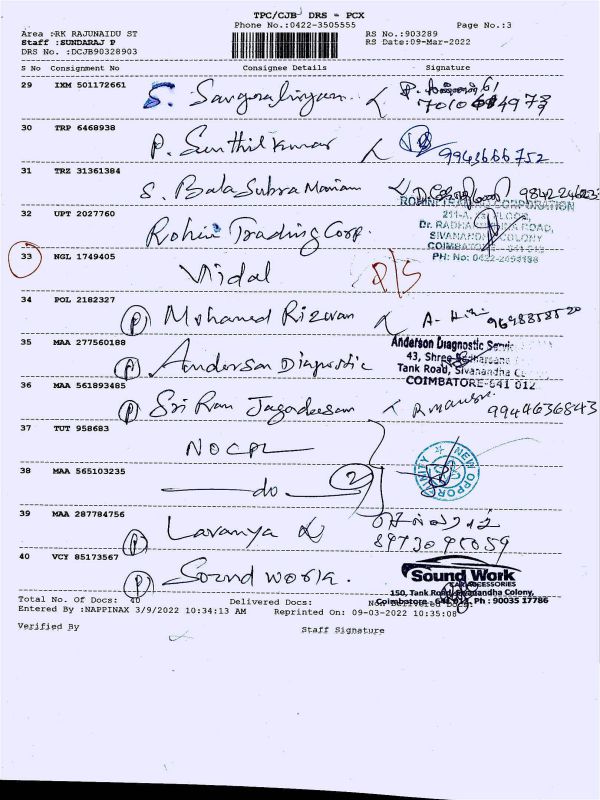 TPC/CJB DRS - PCX
Phone No.:0422-3505555
Page No.:3
Area :RK RAJUNAIDU ST
RS No.:903289
Staff :SUNDARAJ P
RS Date:09-Mar-2022
DRS No. :DCJB90328903
S No Consignment No Consignee Details Signature
29 IXM 501172661
S.
30 TRP 6468938
P. Senthilkumar
9943666752
31 TRZ 31361384
S. Bala Subra Maniam
32 UPT 2027760
Rohini Trading Corp.
211-A,
SIVANANDHA COLONY
COIMBATORE
PH: No: 0422-2498188
33 NGL 1749405
Vidal
P/S
34 POL 2182327
(P) Mohamed Rizwan
35 MAA 277560188
(P) Anderson Diagnostic
Anderson Diagnostic
43, Shree
Tank Road, Sivanandha
COIMBATORE-641 012
36 MAA 561893485
(P) Sri Ram Jagadeesan
9944636843
37 TUT 958683
NOCPL
NEW OPPORTUNITY
38 MAA 565103235
do
2
39 MAA 287784756
(P) Lavanya
40 VCY 85173567
(P) Sound work.
Sound Work
CAR ACCESSORIES
150, Tank Road, Sivanandha Colony,
Coimbatore - 641 012. Ph : 90035 17786
Total No. of Docs: 40 Delivered Docs: Not Delivered Docs:
Entered By :NAPPINAX 3/9/2022 10:34:13 AM Reprinted On: 09-03-2022 10:35:08
Verified By Staff Signature